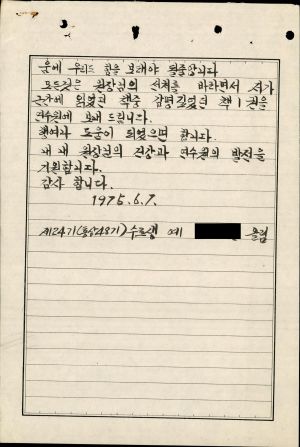 움에 우리도 힘을 보태야 될줄압니다
모든것은 원장님의 선처를 바라면서 저가
근간에 읽었던 책중 감명깊었던 책 1권을
연수원에 보내 드립니다.
행여나 도움이 되었으면 합니다.
내내 원장님의 건강과 연수원의 발전을
기원합니다.
감사 합니다.
1975. 6. 7.
제24기(통상48기)수료생 예 올림